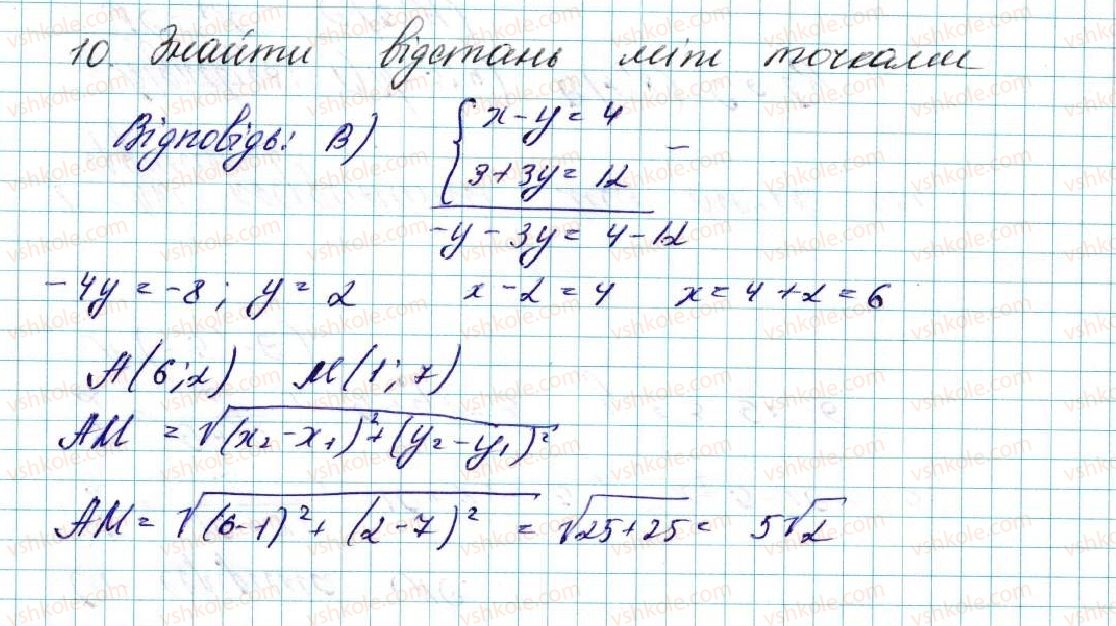 10. Знайти відстань між точками
Відповідь: В) { x - y = 4
3 + 3y = 12 -
-y - 3y = 4 - 12
-4y = -8; y = 2 x - 2 = 4 x = 4 + 2 = 6
A(6;2) M(1;7)
AM = √(x₂ - x₁)² + (y₂ - y₁)²
AM = √(6-1)² + (2-7)² = √25+25 = 5√2
vshkole.com